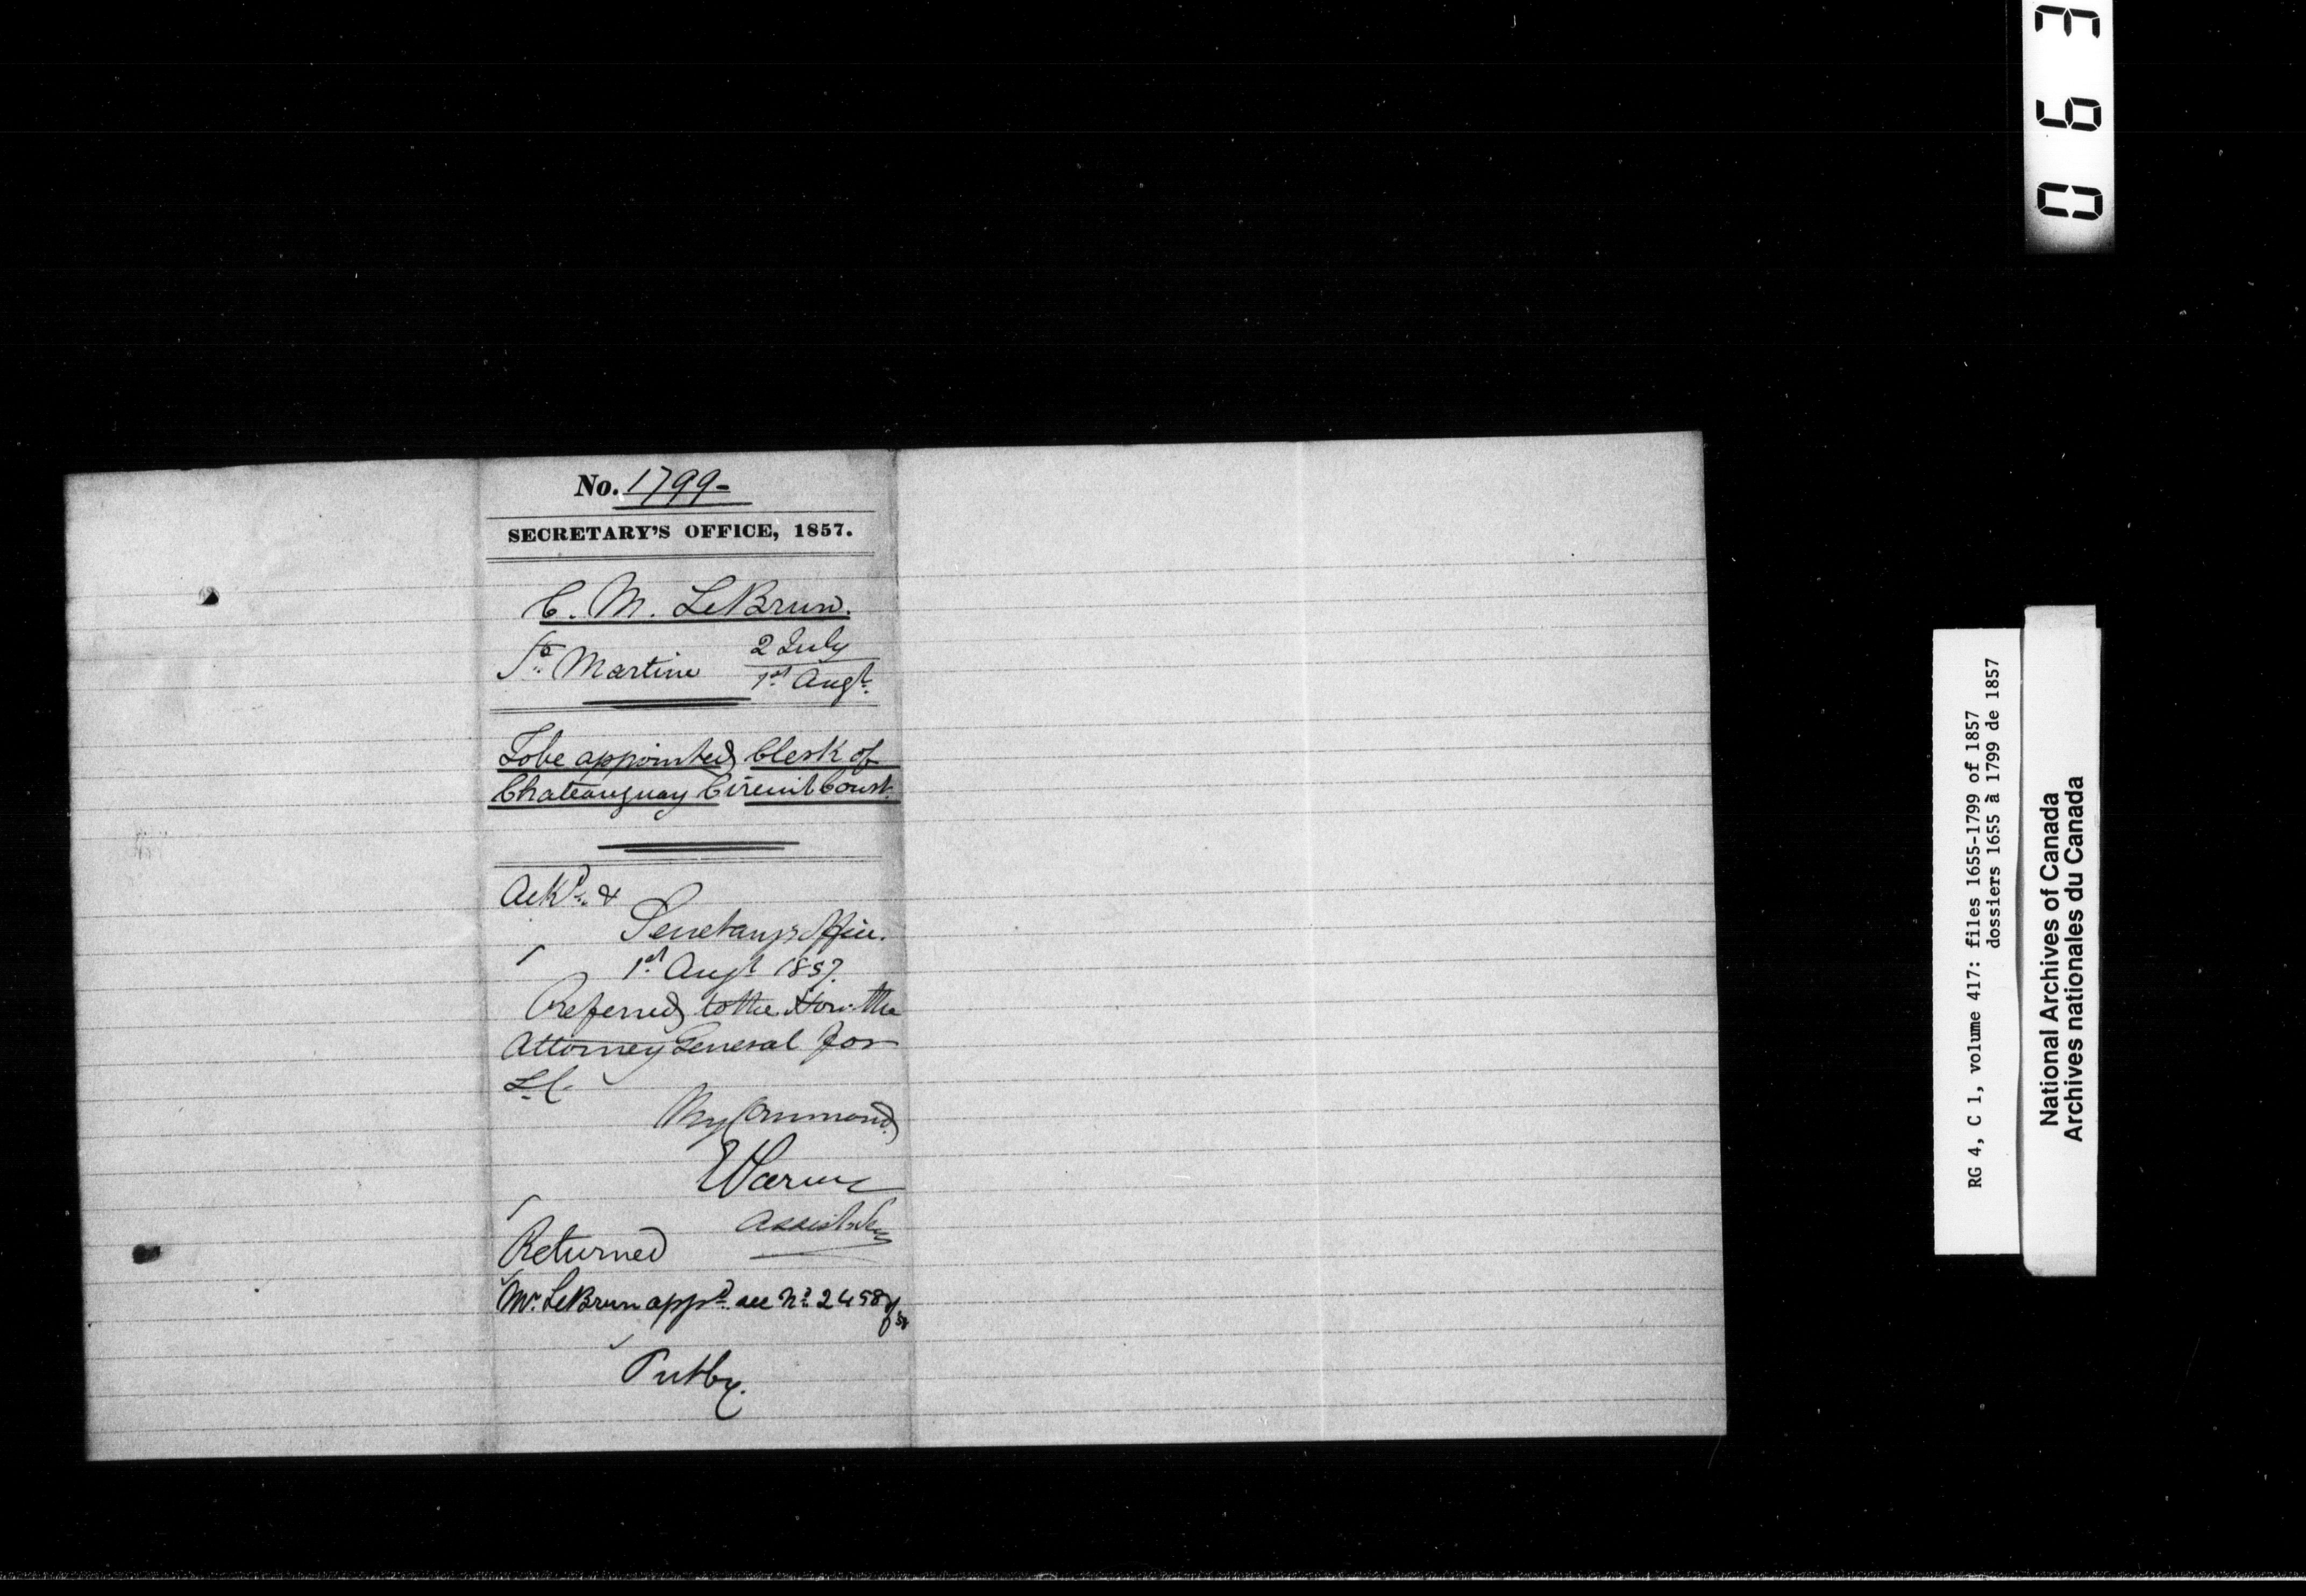 No. 1799-
SECRETARY'S OFFICE, 1857.
C. M. LeBrun.
Ste Martine 2 July
1st Augt.
To be appointed Clerk of
Chateauguay Circuit Court.
Ackd. &
Secretary's Office.
1st Augt 1857.
Referred to the Hon: the
Attorney General for
L.C.
By Command
Assist Secy
Returned
Mr. LeBrun appd. see No. 2458 of
Put by.
063
RG 4, C 1, volume 417: files 1655-1799 of 1857
dossiers 1655 à 1799 de 1857
National Archives of Canada
Archives nationales du Canada